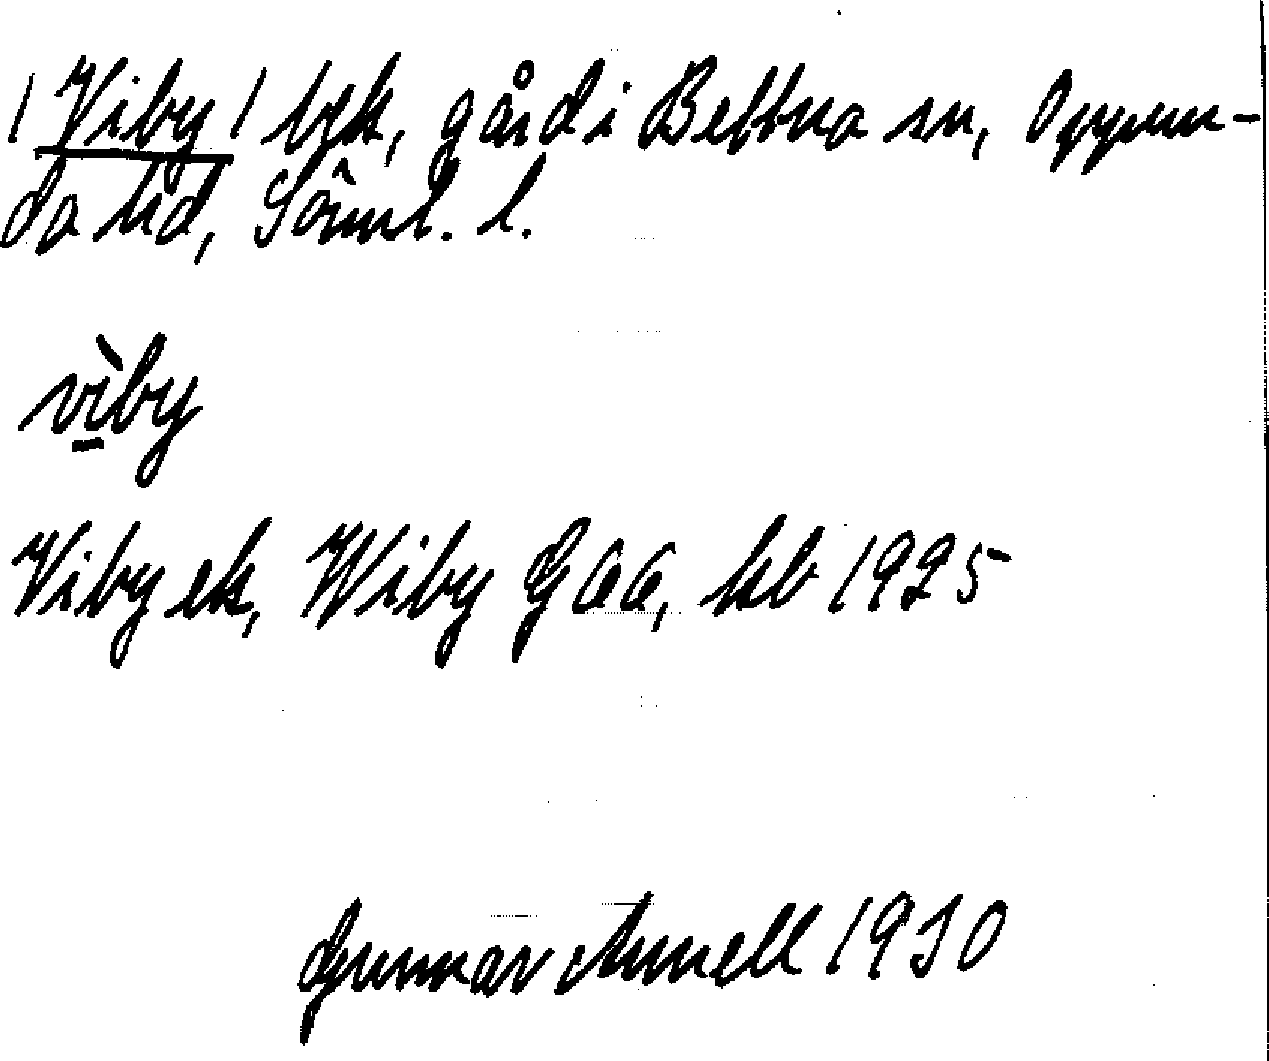 /Viby/ bek, gård i Bettna sn, Oppun-
da hd, Söml. l.
vìby
Viby ek, Wiby GEA, kb 1925
Gunnar Annell 1930